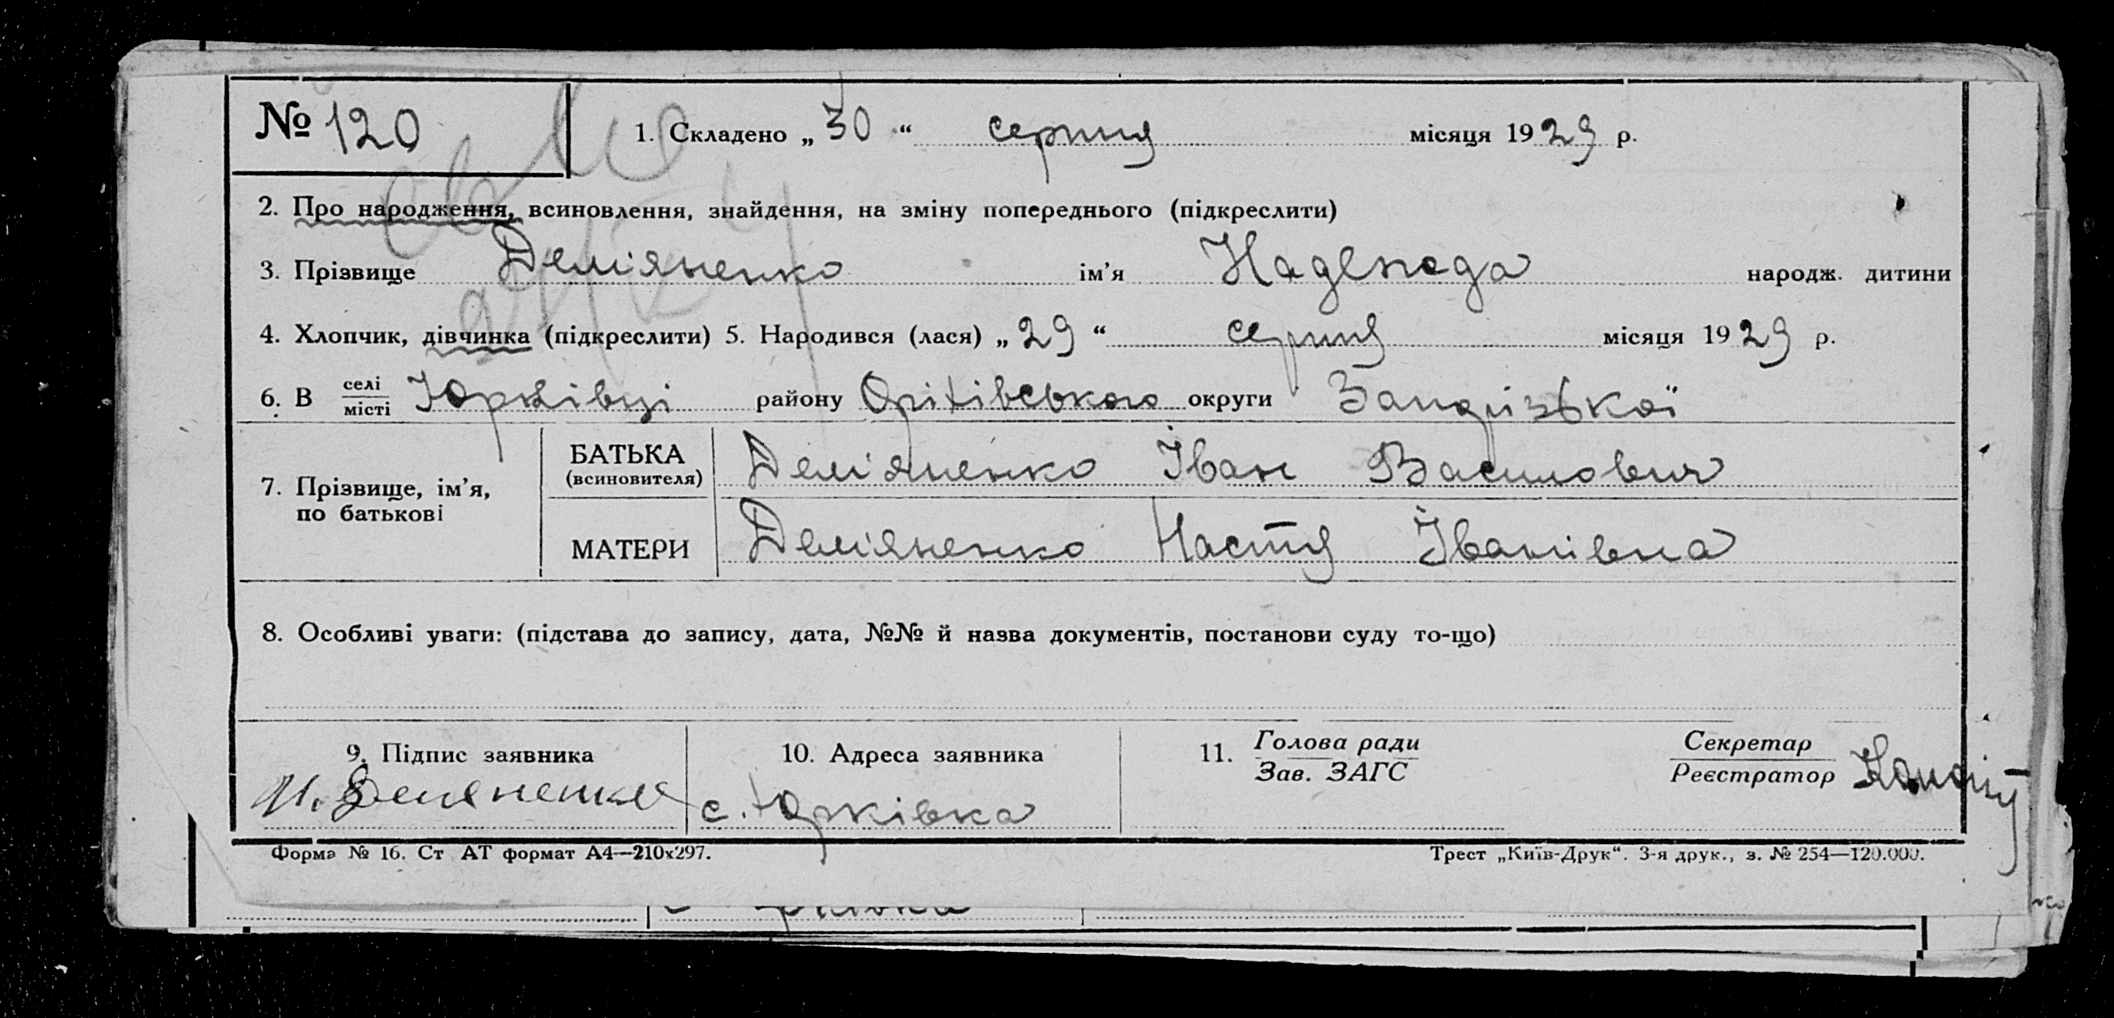 № 120
1. Складено „30“ серпня місяця 1929 р.
2. Про народження, всиновлення, знайдення, на зміну попереднього (підкреслити)
3. Прізвище Дем'яненко ім'я Надежда народж. дитини
4. Хлопчик, дівчинка (підкреслити) 5. Народився (лася) „29“ серпня місяця 1929 р.
6. В селі місті Юрківці району Оріхівського округи Запорізької
7. Прізвище, ім'я, по батькові
БАТЬКА (всиновителя) Дем'яненко Іван Василович
МАТЕРИ Дем'яненко Настя Іванівна
8. Особливі уваги: (підстава до запису, дата, №№ й назва документів, постанови суду то-що)
9. Підпис заявника
10. Адреса заявника
с. Юрківка
11. Голова ради Зав. ЗАГС
Секретар Реєстратор
Форма № 16. Ст АТ формат А4—210х297.
Трест „Київ-Друк“. 3-я друк., з. № 254—120.000.